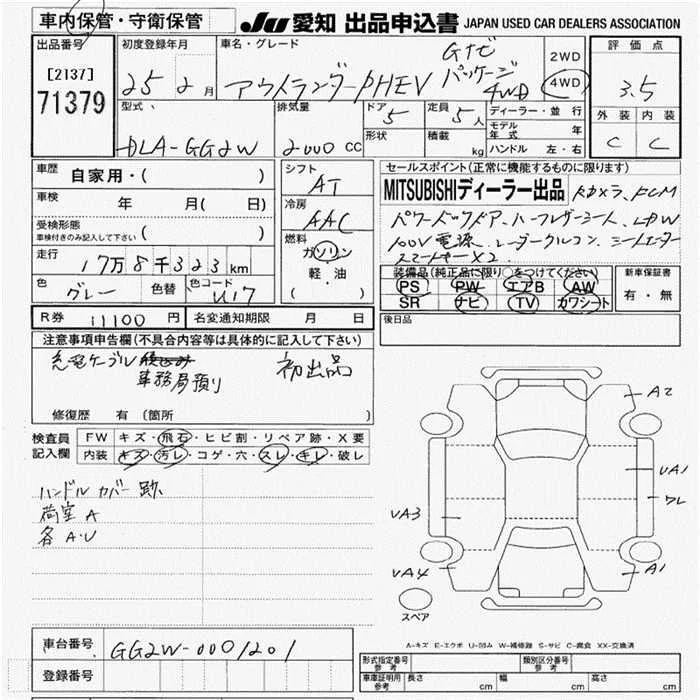 車内保管・守衛保管
JU 愛知 出品申込書 JAPAN USED CAR DEALERS ASSOCIATION
出品番号
[2137]
71379
初度登録年月
25 2月
車名・グレード
アウトランダーPHEV
Gナビ
パッケージ
4WD
2WD
4WD
評価点
3.5
外装 内装
C C
型式
DLA-GG2W
排気量
2000 CC
ドア
5
形状
定員
5人
積載
kg
ディーラー・並行
モデル
年式 年
ハンドル 左・右
車歴
自家用・( )
車検
年 月( 日)
受検形態
車検付きのみ記入して下さい ( )
走行
17万8千323km
色
グレー
色替
色コード
U17
シフト
AT
冷房
AAC
燃料
ガソリン
軽・油
( )
セールスポイント(正常に機能するものに限ります)
MITSUBISHIディーラー出品
パワーバックドア、ハーフレザーシート、LDW
100V電源
装備品(純正品に限り○をつけてください)
PS PW エアB AW
SR ナビ TV カワシート
新車保証書
有・無
R券 11100円
名変通知期限 月 日
後日品
注意事項申告欄(不具合内容等は具体的に記入して下さい)
充電ケーブル
事務局預り
初出品
修復歴 有(箇所 )
検査員
記入欄
FW キズ・飛石・ヒビ割・リペア跡・X要
内装 キズ・汚レ・コゲ・穴・スレ・キレ・破レ
ハンドル カバー跡
荷室 A
各 A.U
A2
UA1
ワレ
UA3
UA4
A1
スペア
A-キズ E-エクボ U-凹み W-補修跡 S-サビ C-腐食 XX-交換済
車台番号 GG2W-0001201
登録番号
形式指定番号
参考
類別区分番号
参考
車庫証明用
参考
長さ cm
幅 cm
高さ cm